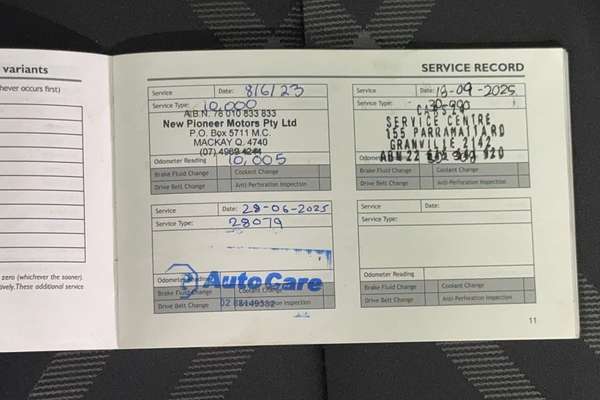 variants
ever occurs first)
zero (whichever the sooner)
tively. These additional service
SERVICE RECORD
Service Date: 8/6/23
Service Type: 10,000
A.B.N. 76 010 833 833
New Pioneer Motors Pty Ltd
P.O. Box 5711 M.C.
MACKAY Q. 4740
(07) 4969
Odometer Reading 10,005
Brake Fluid Change Coolant Change
Drive Belt Change Anti-Perforation Inspection
Service Date: 28-06-2025
Service Type: 28079
Odometer Reading
AutoCare
Brake Fluid Change Coolant Change
02 88149332
Drive Belt Change Inspection
Service Date: 19-09-2025
Service Type: 30-990
SERVICE CENTRE
155 PARRAMATTA RD
GRANVILLE 2142
ABN 22
Brake Fluid Change Coolant Change
Drive Belt Change Anti-Perforation Inspection
Service Date:
Service Type:
Odometer Reading
Brake Fluid Change Coolant Change
Drive Belt Change Anti-Perforation Inspection
11